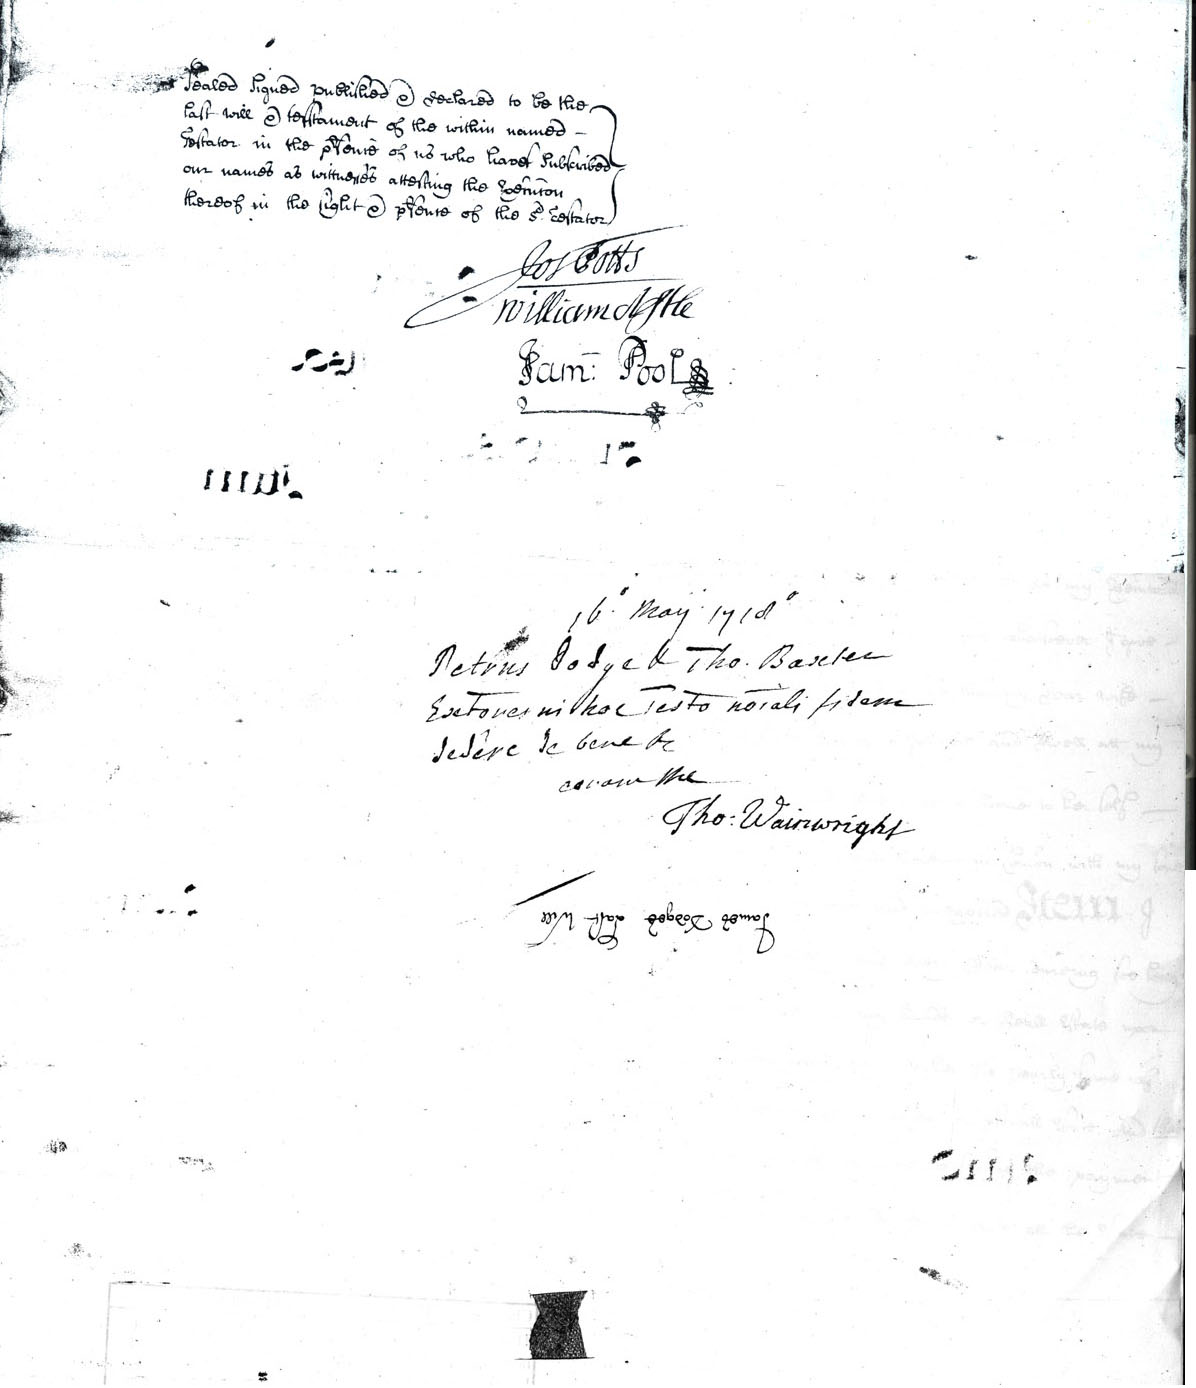 Sealed Signed published & declared to be the
last will & testament of the within named –
Testator in the p'sence of us who have Subscribed
our names as witnesses attesting the Execution
thereof in the sight & p'sence of the sd. Testator
Jos Potts
William Astle
Sam: Pool
16o May 1718o
Petrus Dodge & Tho. Baxter
Extores in hoc Testo noīati fidem
dedêre de bene &c
coram me
Tho: Wainwright
James Dodges Last Will